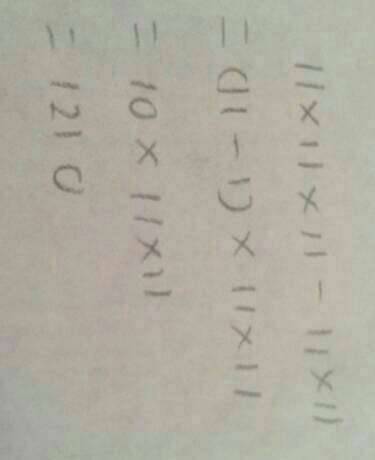 11×11×11-11×11
=(11-1)×11×11
=10×11×11
=1210